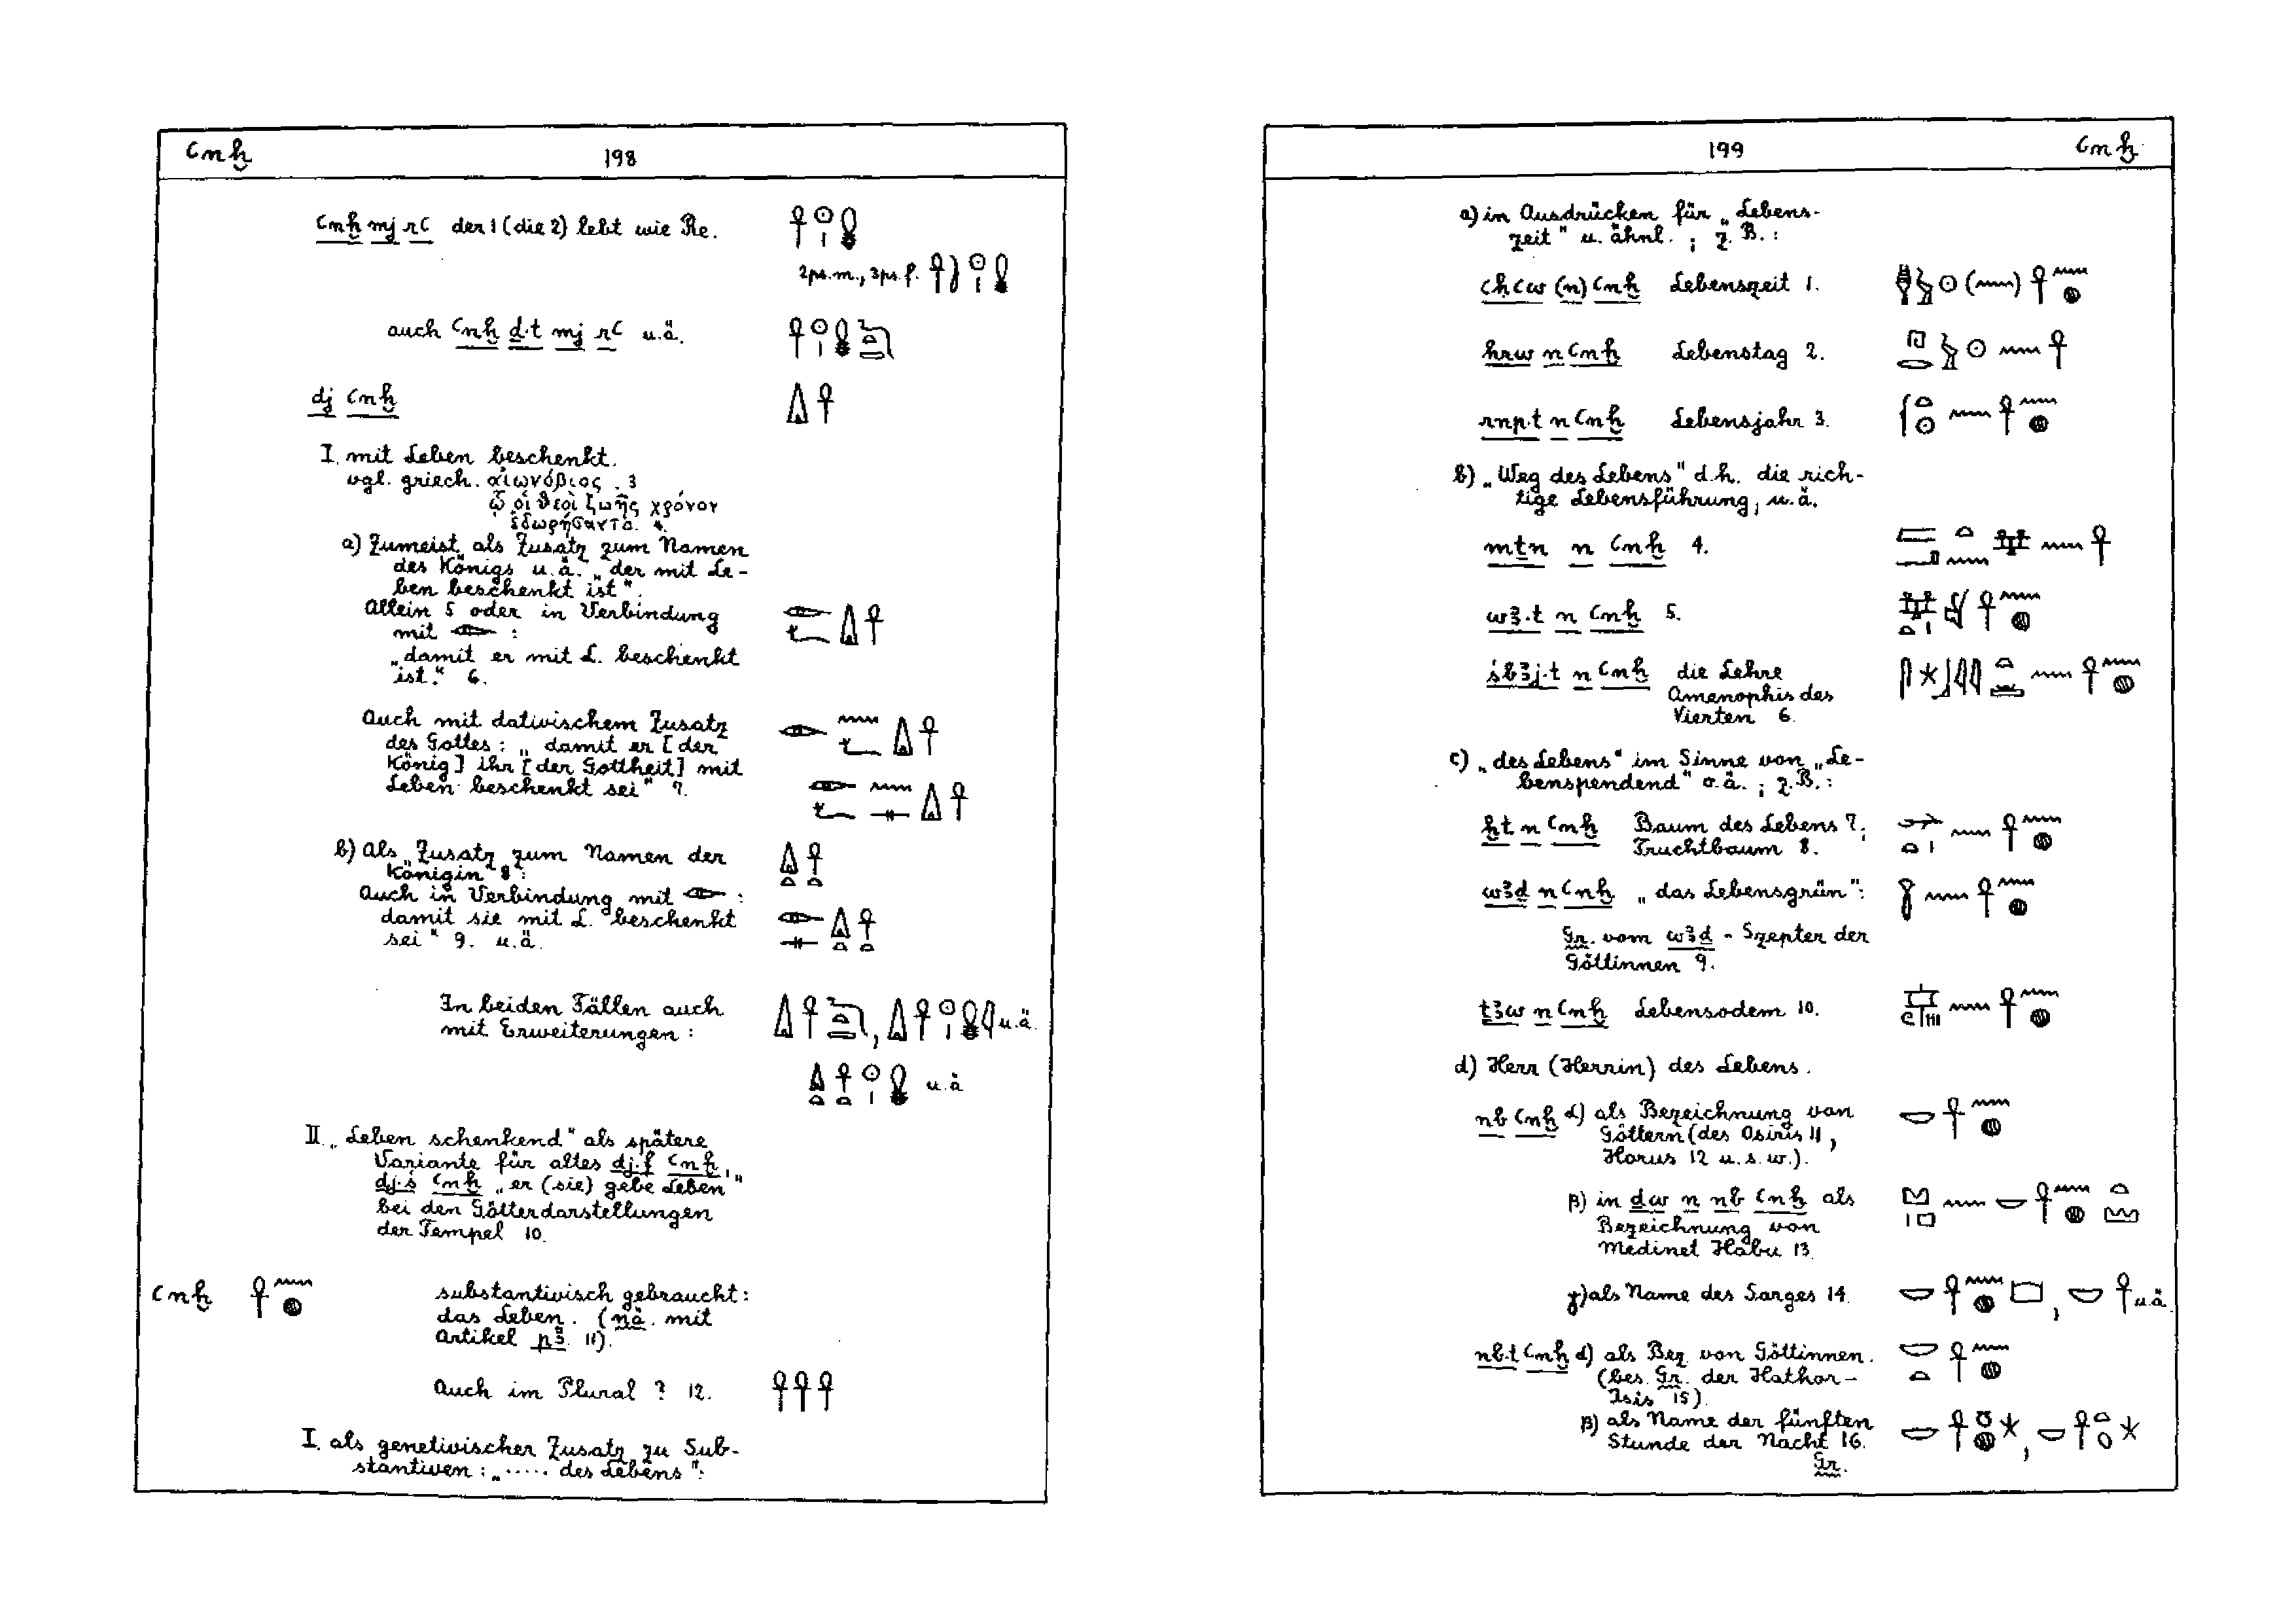 ꜥnḫ 198
ꜥnḫ mj rꜥ der 1 (die 2) lebt wie Re. 𓋹𓇳𓏤𓎛
2ps.m., 3ps.f.
auch ꜥnḫ ḏ.t mj rꜥ u.ä.
dj ꜥnḫ
I. mit Leben beschenkt.
vgl. griech. αἰωνόβιος . 3
ᾧ οἱ θεοὶ ζωῆς χρόνον
ἐδωρήσαντο. 4.
a) Zumeist als Zusatz zum Namen
des Königs u.ä. „der mit Le-
ben beschenkt ist".
Allein 5 oder in Verbindung
mit 𓁹 :
„damit er mit L. beschenkt
ist." 6.
Auch mit dativischem Zusatz
des Gottes: „damit er [der
König] ihr [der Gottheit] mit
Leben beschenkt sei" 7.
b) Als Zusatz zum Namen der
Königin 8:
Auch in Verbindung mit 𓁹 :
damit sie mit L. beschenkt
sei" 9. u.ä.
In beiden Fällen auch
mit Erweiterungen : u.ä.
u.ä
II. „Leben schenkend" als spätere
Variante für altes dj.f ꜥnḫ,
dj.ś ꜥnḫ „er (sie) gebe Leben"
bei den Götterdarstellungen
der Tempel 10.
ꜥnḫ 𓋹𓈖𓐍 substantivisch gebraucht:
das Leben. (nä. mit
Artikel pꜣ 11).
Auch im Plural ? 12. 𓋹𓋹𓋹
I. als genetivischer Zusatz zu Sub-
stantiven: „..... des Lebens":
199 ꜥnḫ
a) in Ausdrücken für „Lebens-
zeit" u. ähnl. ; z. B.:
ꜥḥꜥw (n) ꜥnḫ Lebenszeit 1.
hrw n ꜥnḫ Lebenstag 2.
rnp.t n ꜥnḫ Lebensjahr 3.
b) „Weg des Lebens" d.h. die rich-
tige Lebensführung, u.ä.
mṯn n ꜥnḫ 4.
wꜣ.t n ꜥnḫ 5.
śbꜣj.t n ꜥnḫ die Lehre
Amenophis des
Vierten 6.
c) „des Lebens" im Sinne von „Le-
benspendend" o.ä. ; z. B.:
ḫt n ꜥnḫ Baum des Lebens 7;
Fruchtbaum 8.
wꜣḏ n ꜥnḫ „das Lebensgrün":
Gr. vom wꜣḏ - Szepter der
Göttinnen 9.
ṯꜣw n ꜥnḫ Lebensodem 10.
d) Herr (Herrin) des Lebens.
nb ꜥnḫ α) als Bezeichnung von
Göttern (des Osiris 11,
Horus 12 u.s.w.).
β) in ḏw n nb ꜥnḫ als
Bezeichnung von
Medinet Habu 13.
γ) als Name des Sarges 14. u.ä
nb.t ꜥnḫ α) als Bez. von Göttinnen.
(bes. Gr. der Hathor-
Isis 15).
β) als Name der fünften
Stunde der Nacht 16.
Gr.